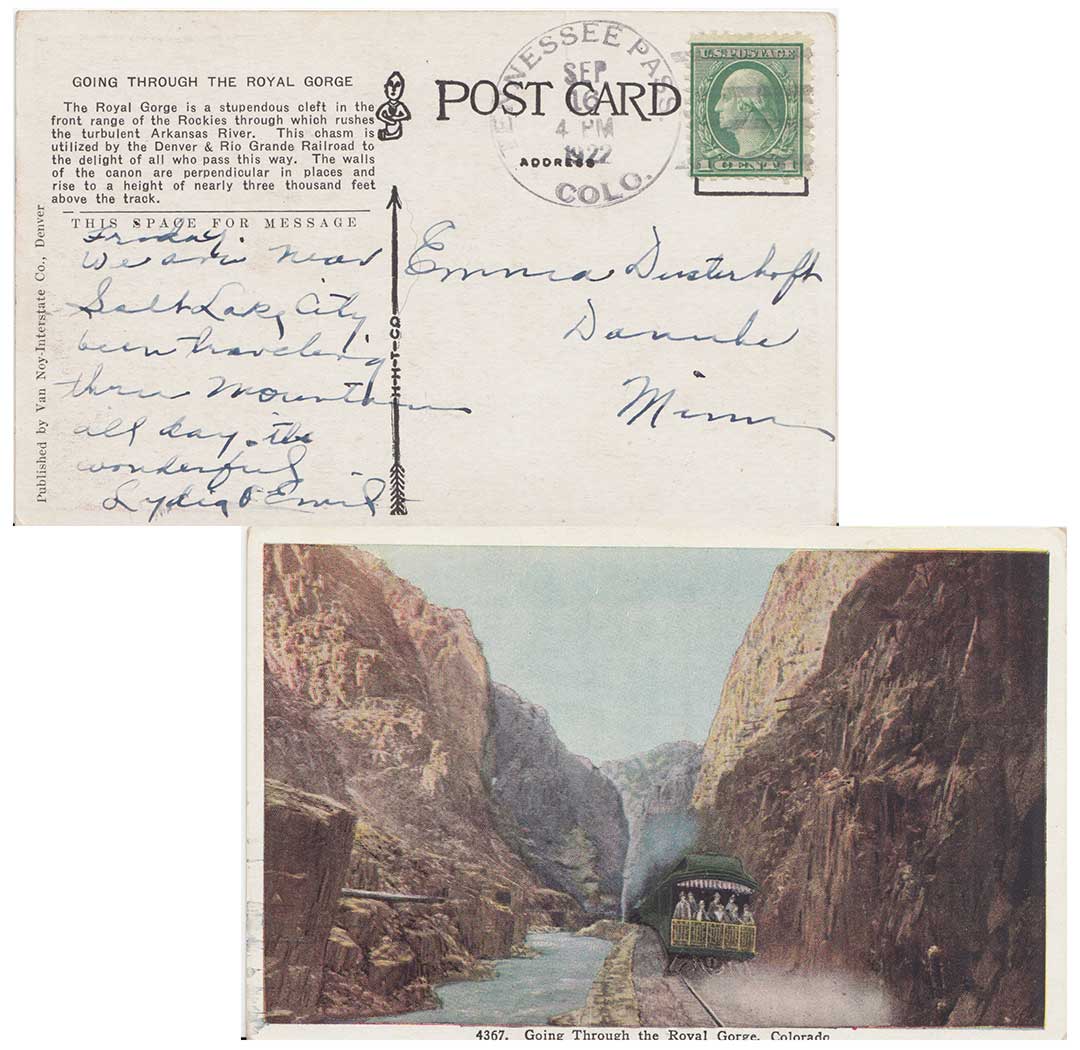 GOING THROUGH THE ROYAL GORGE
The Royal Gorge is a stupendous cleft in the
front range of the Rockies through which rushes
the turbulent Arkansas River. This chasm is
utilized by the Denver & Rio Grande Railroad to
the delight of all who pass this way. The walls
of the canon are perpendicular in places and
rise to a height of nearly three thousand feet
above the track.
THIS SPACE FOR MESSAGE
Friday.
We are near
Salt Lake City
been traveling
thru Mountains
all day. its
wonderful
Lydia & Emil
Published by Van Noy-Interstate Co., Denver
H-H-T-CO
POST CARD
ADDRESS
TENNESSEE PASS
SEP
16
4 PM
1922
COLO.
U.S. POSTAGE
1 CENT 1
Emma Dusterhoft
Danube
Minn
4367. Going Through the Royal Gorge, Colorado